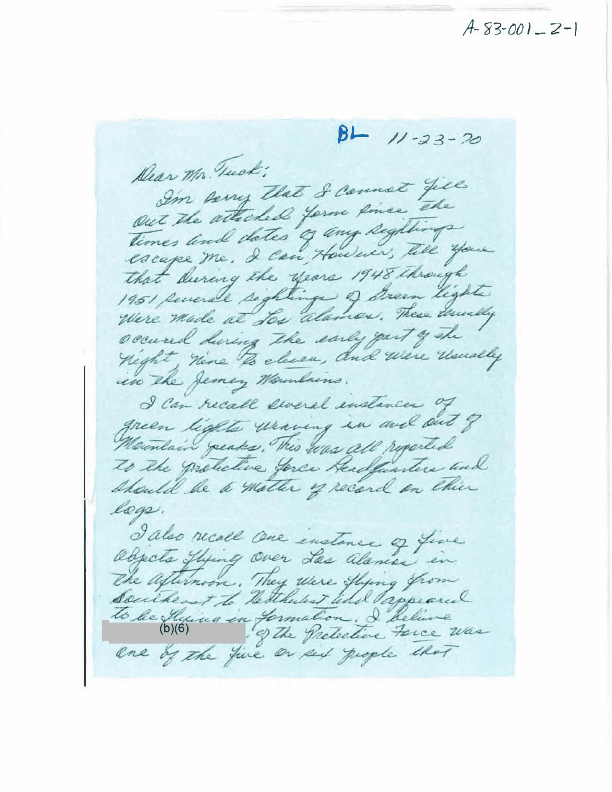 A-83-001_2-1
BL 11-23-70
Dear Mr. Tuck:
I'm sorry that I cannot fill
out the attached form since the
times and dates of any sightings
escape me. I can, However, tell you
that during the years 1948 through
1951 several sightings of Green lights
were made at Los Alamos. These usually
occured during the early part of the
Night, Nine to eleven, and were usually
in the Jemez Mountains.
I can recall several instances of
green lights weaving in and out of
Mountain peaks. This was all reported
to the protective force Headquarters and
should be a matter of record on thier
logs.
I also recall one instance of five
objects flying over Los Alamos in
the afternoon. They were flying from
Southeast to Northwest and appeared
to be flying in formation. I believe
(b)(6) of the Protective Force was
one of the five or six people that